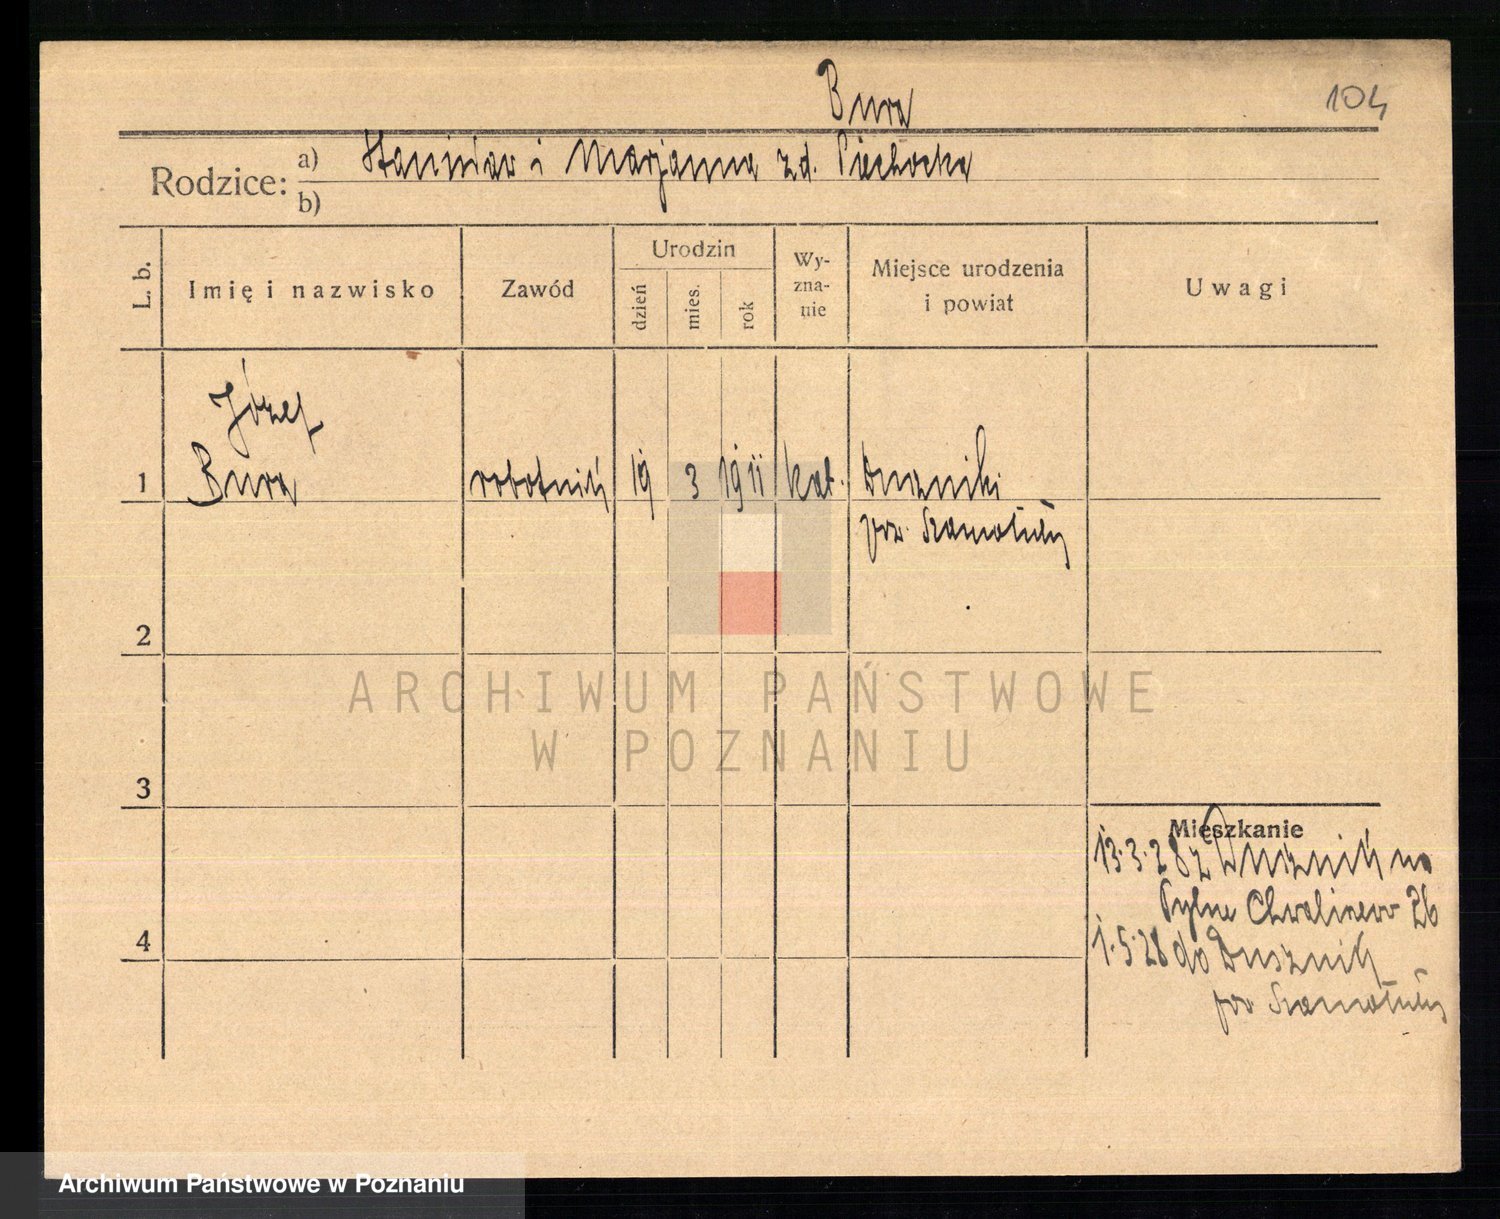 Bura
104
Rodzice:
a) Stanisław i Marjanna zd. Piechocka
b)
L. b.
Imię i nazwisko
Zawód
Urodzin
dzień
mies.
rok
Wy-
zna-
nie
Miejsce urodzenia
i powiat
Uwagi
Józef
1 Bura robotnik 19 3 1911 kat. Duszniki
pow. Szamotuły
2
ARCHIWUM PAŃSTWOWE
W POZNANIU
3
Mieszkanie
13.3.28 z Dusznik na
Chwaliszew 26
4
1.5.28 do Dusznik
pow Szamotuły
Archiwum Państwowe w Poznaniu